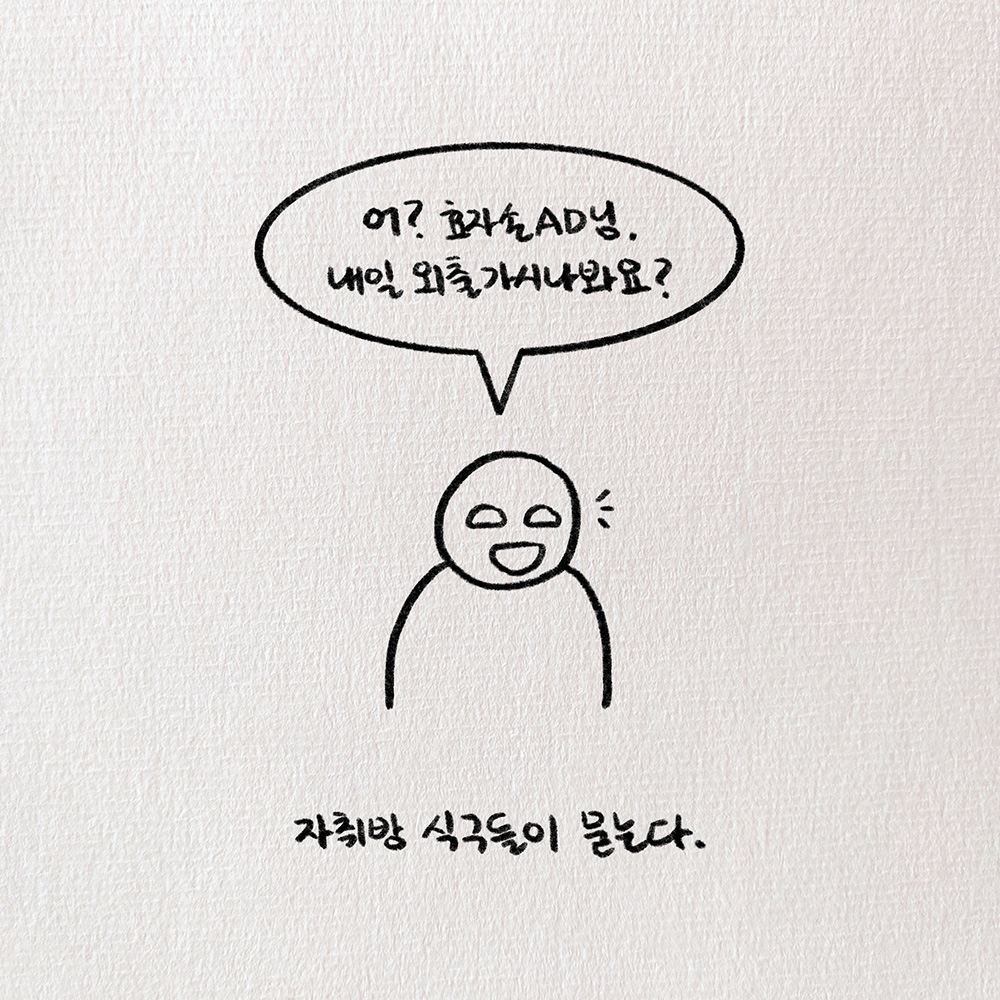 어? 효자손AD님.
내일 외출가시나봐요?
자취방 식구들이 묻는다.